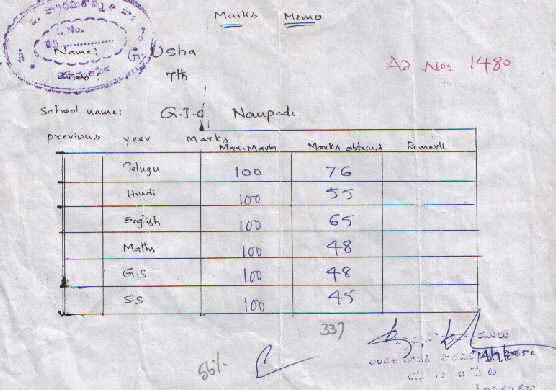 Marks Memo
Name: G. Usha
7th
Ad No: 1480
School name: Naupada
previous year Marks
Max-Marks Marks obtained Remark
Telugu 100 76
Hindi 100 55
English 100 65
Maths 100 48
G.S 100 48
S.S 100 45
337
56%